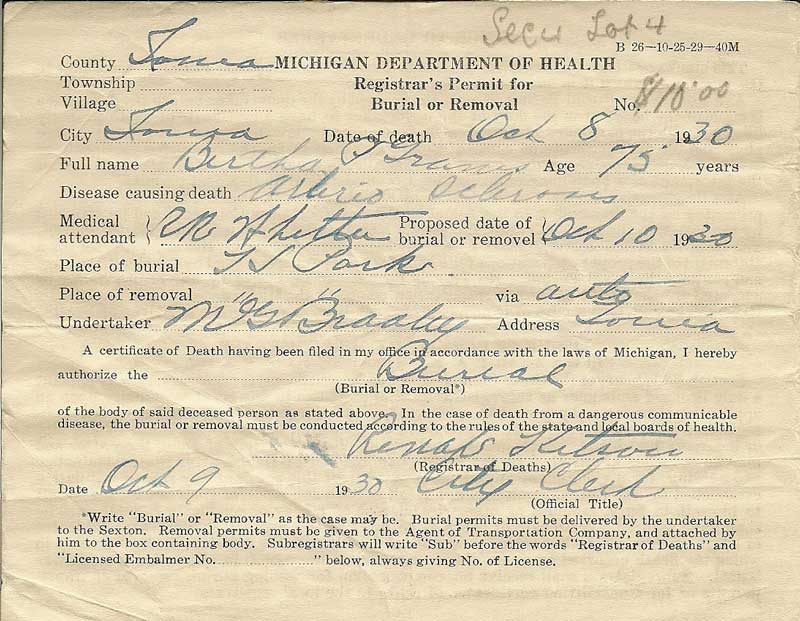 Sec 4 Lot 4
B 26—10-25-29—40M
County Ionia MICHIGAN DEPARTMENT OF HEALTH
Township Registrar's Permit for
Village Burial or Removal No. $10.00
City Ionia Date of death Oct 8 1930
Full name Bertha Age 75 years
Disease causing death Arterio Sclerosis
Medical attendant C R Whitten Proposed date of burial or removel Oct 10 1930
Place of burial Park
Place of removal " " via auto
Undertaker Bradley Address Ionia
A certificate of Death having been filed in my office in accordance with the laws of Michigan, I hereby
authorize the Burial
(Burial or Removal*)
of the body of said deceased person as stated above. In the case of death from a dangerous communicable
disease, the burial or removal must be conducted according to the rules of the state and local boards of health.
(Registrar of Deaths)
Date Oct 9 1930 City Clerk
(Official Title)
*Write "Burial" or "Removal" as the case may be. Burial permits must be delivered by the undertaker
to the Sexton. Removal permits must be given to the Agent of Transportation Company, and attached by
him to the box containing body. Subregistrars will write "Sub" before the words "Registrar of Deaths" and
"Licensed Embalmer No. " below, always giving No. of License.